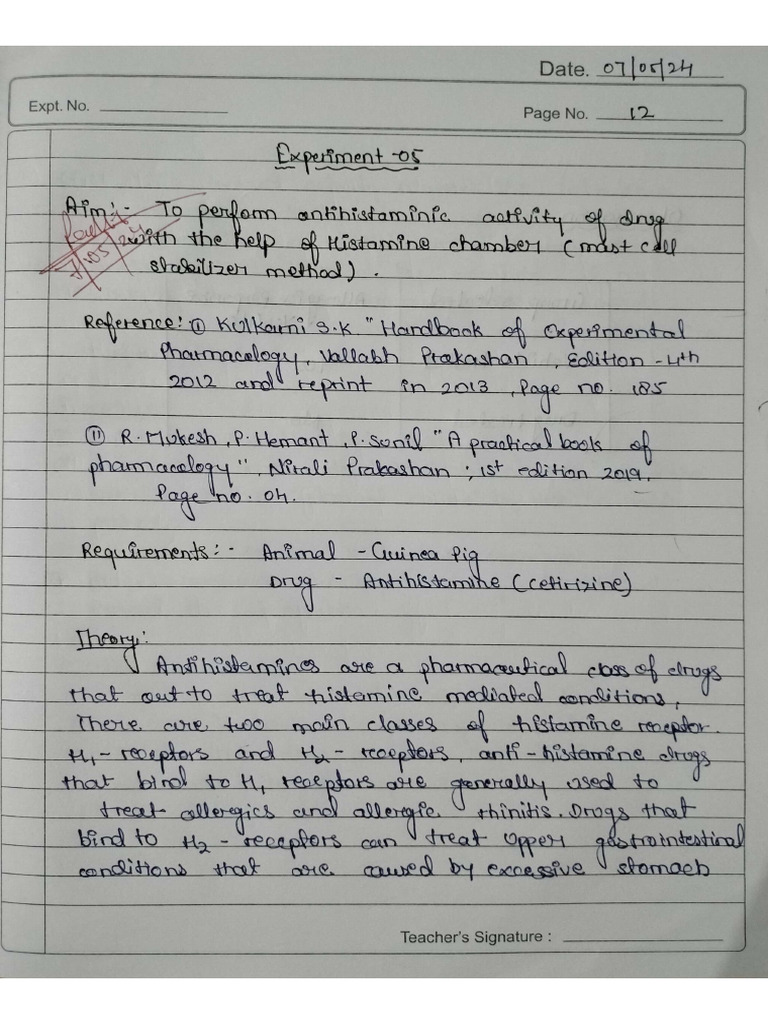 Date. 07/05/24
Expt. No.
Page No. 12
Experiment -05
Aim:- To perform antihistaminic activity of drug
with the help of Histamine chamber (mast cell
stabilizer method).
Reference: ① Kulkarni S.K "Handbook of experimental
Pharmacology, Vallabh Prakashan, Edition -4th
2012 and reprint in 2013, Page no. 185
② R. Mukesh, P. Hemant, P. Sunil "A practical book of
pharmacology", Nirali Prakashan; 1st edition 2019.
Page no. 04.
Requirements:- Animal - Guinea Pig
Drug - Antihistamine (cetirizine)
Theory:
Antihistamines are a pharmaceutical class of drugs
that out to treat histamine mediated conditions,
There are two main classes of histamine receptor.
H₁- receptors and H₂- receptors, anti-histamine drugs
that bind to H₁ receptors are generally used to
treat allergics and allergic rhinitis. Drugs that
bind to H₂- receptors can treat upper gastrointestinal
conditions that are caused by excessive stomach
Teacher's Signature :